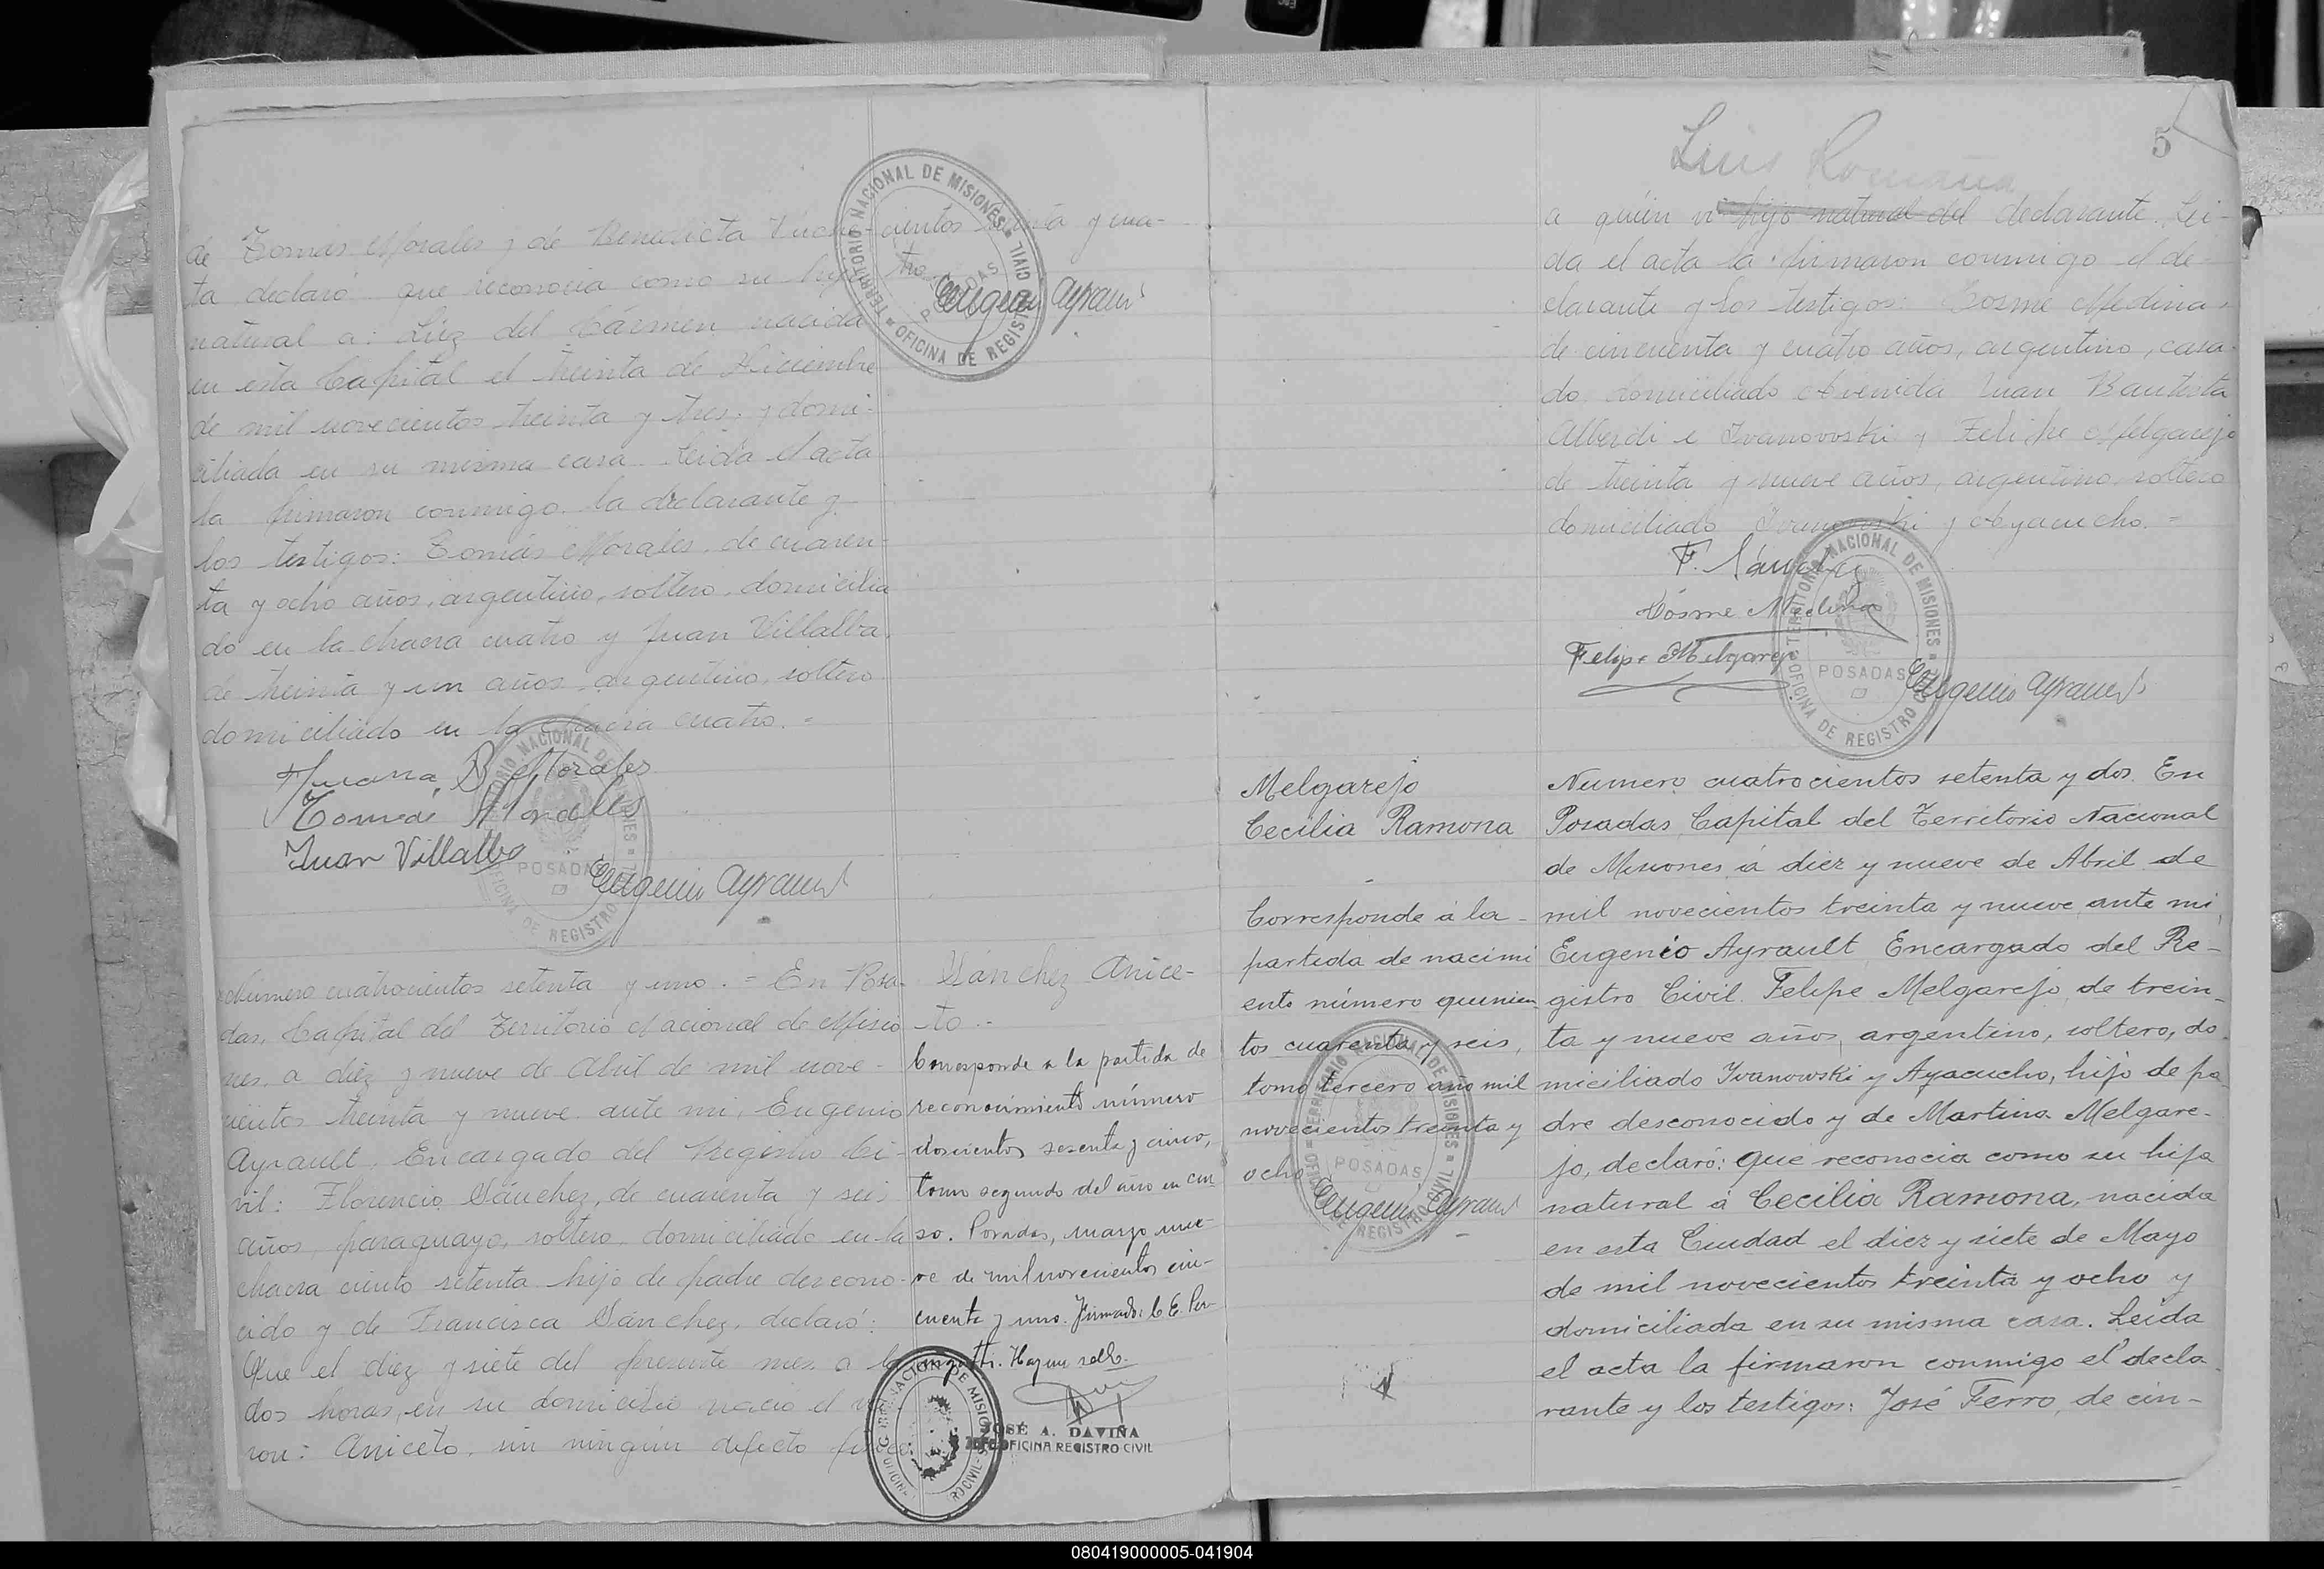 de Tomás Morales y de Benedicta
ta declaró que reconocia como su hija
natural a: Luz del Cármen nacida
en esta Capital el treinta de Diciembre
de mil novecientos treinta y tres y domi-
ciliada en su misma casa. Leida el acta
la firmaron conmigo la declarante y
los testigos: Tomás Morales, de cuaren-
ta y ocho años, argentino, soltero, domicilia
do en la chacra cuatro y Juan Villalba,
de treinta y un años, argentino, soltero
domiciliado en la chacra cuatro. =
Juana B Morales
Tomás Morales
Juan Villalba
Eugenio Ayrault
TERRITORIO NACIONAL DE MISIONES
OFICINA DE REGISTRO CIVIL
POSADAS
cientos y cua-
tro
Eugenio Ayrault
TERRITORIO NACIONAL DE MISIONES
OFICINA DE REGISTRO CIVIL
POSADAS
Número cuatrocientos setenta y uno. = En Posa-
das, Capital del Territorio Nacional de Misio
nes, a diez y nueve de Abril de mil nove-
cientos treinta y nueve, ante mi, Eugenio
Ayrault, Encargado del Registro Ci-
vil: Florencio Sánchez, de cuarenta y seis
años, paraguayo, soltero, domiciliado en la
chacra ciento setenta, hijo de padre descono-
cido y de Francisca Sánchez, declaró:
Que el diez y siete del presente mes a las
dos horas, en su domicilio nació el va
ron: Aniceto, sin ningún defecto fisico
Sánchez Anice-
to.-
Corresponde a la partida de
reconocimiento número
doscientos sesenta y cinco,
tomo segundo del año en cur-
so. Posadas, mayo nue-
ve de mil novecientos cin-
cuenta y uno. Firmado: C E.
Hay un sello.
JOSÉ A. DAVIÑA
JEFE OFICINA REGISTRO CIVIL
5
Luis Romaña
a quién vi hijo natural del declarante. Lei-
da el acta la firmaron conmigo el de-
clarante y los testigos: Cosme Medina,
de cincuenta y cuatro años, argentino, casa-
do, domiciliado Avenida Juan Bautista
Alberdi e Ivanowski y Felipe Melgarejo
de treinta y nueve años, argentino, soltero
domiciliado Ivanowski y Ayacucho. =
F. Sánchez
Cósme Medina
Felipe Melgarejo
Eugenio Ayrault
TERRITORIO NACIONAL DE MISIONES
OFICINA DE REGISTRO CIVIL
POSADAS
Melgarejo
Cecilia Ramona
Corresponde á la
partida de nacimi
ento número quinien
tos cuarenta y seis,
tomo tercero año mil
novecientos treinta y
ocho
Eugenio Ayrault
TERRITORIO NACIONAL DE MISIONES
OFICINA DE REGISTRO CIVIL
POSADAS
Numero cuatrocientos setenta y dos. En
Posadas Capital del Territorio Nacional
de Misiones á diez y nueve de Abril de
mil novecientos treinta y nueve, ante mi,
Eugenio Ayrault Encargado del Re-
gistro Civil. Felipe Melgarejo, de trein-
ta y nueve años, argentino, soltero, do
miciliado Ivanowski y Ayacucho, hijo de pa
dre desconocido y de Martina Melgare-
jo, declaró: que reconocia como su hija
natural á Cecilia Ramona, nacida
en esta Ciudad el diez y siete de Mayo
de mil novecientos treinta y ocho y
domiciliada en su misma casa. Leida
el acta la firmaron conmigo el decla
rante y los testigos: José Ferro, de cin-
080419000005-041904